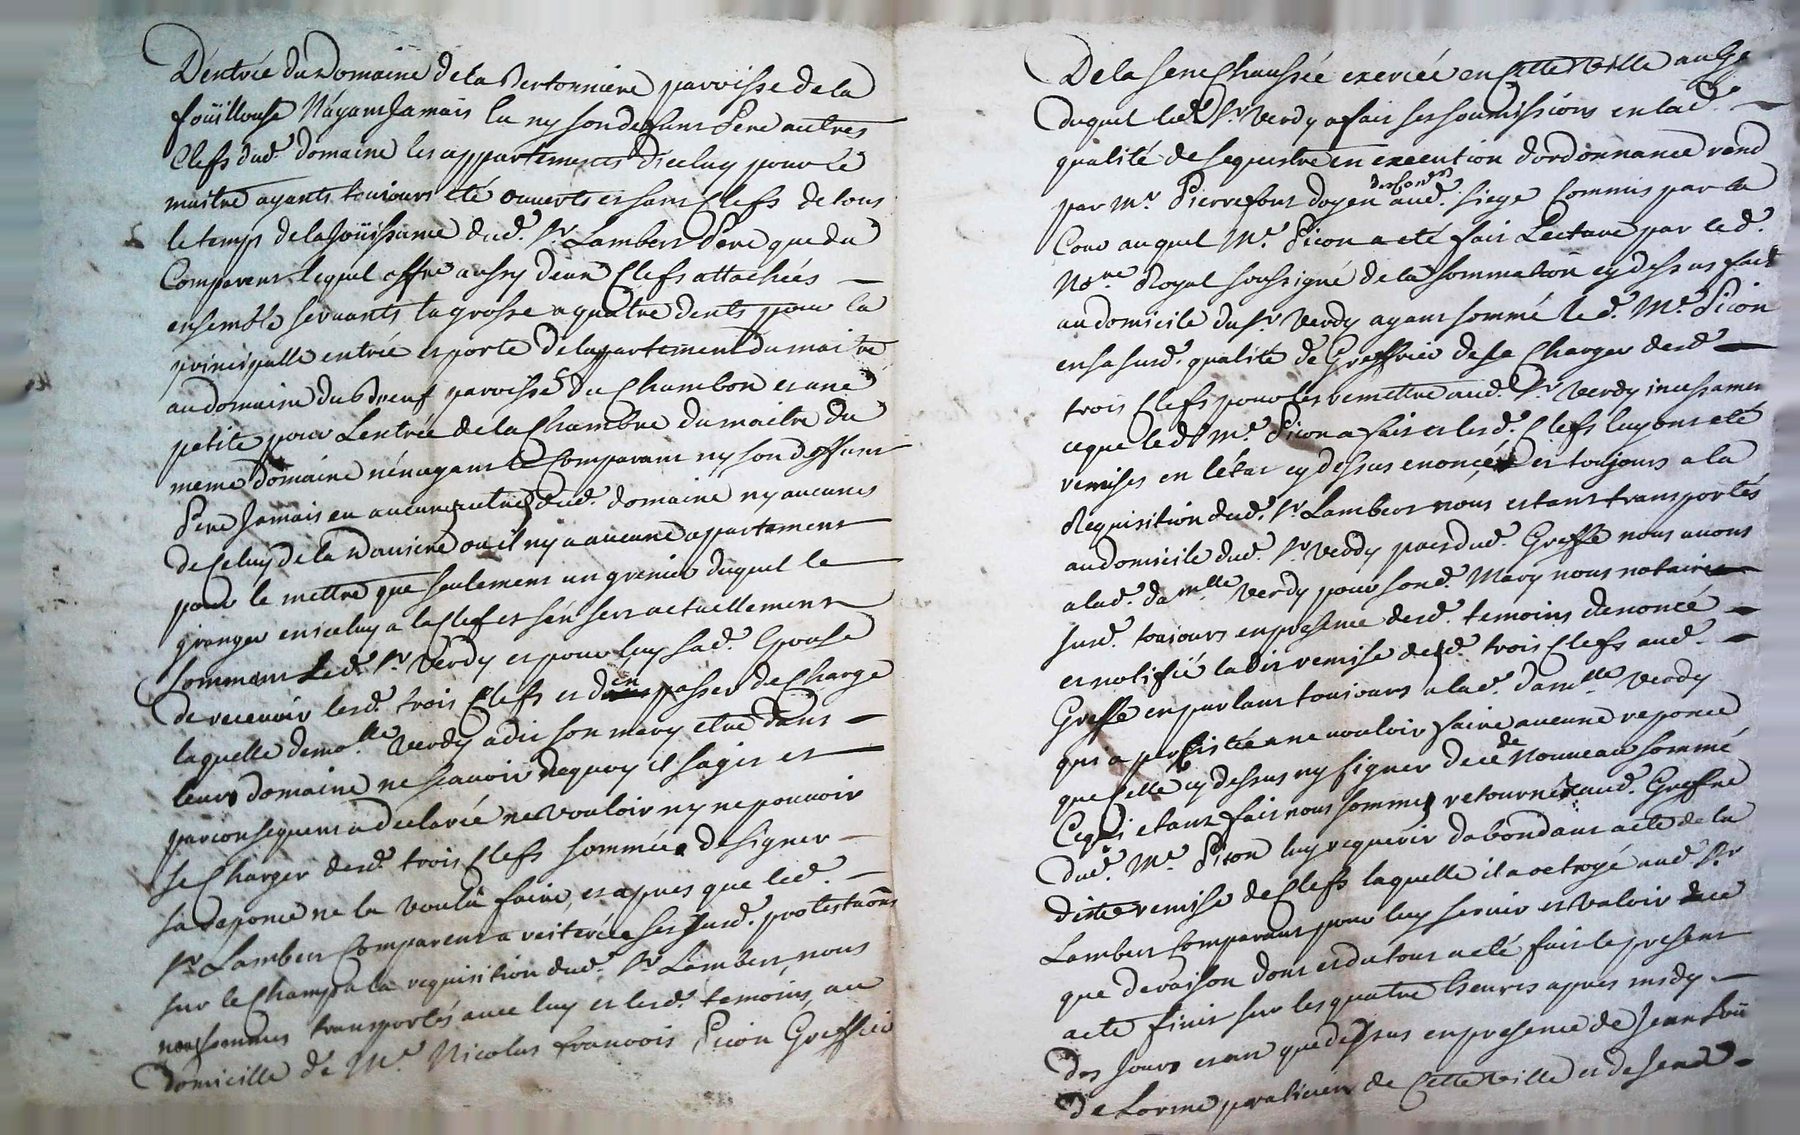 D'entrée du Domaine de la Bertonniere parroisse de la
foüillouse N'ayant Jamais lu ny son deffunt Pere autres
Clefs dud. domaine les appartements d'iceluy pour le
maitre ayants toujours été ouverts et sans Clefs de tous
le temps de la Joüissance dud. Sr. Lambert Pere que du
Comparent lequel offre aussy deux Clefs attachées
ensemble servants la grosse a quatre dents pour la
principalle entrée et porte de l'appartement du maitre
au domaine du Breuf parroisse du Chambon et une
petite pour Lentrée de la Chambre du maitre du
meme domaine n'en ayant le Comparant ny son deffunt
Pere Jamais eu aucuns autres dud. domaine ny aucunes
de Celuy de la ou il ny a aucune appartement
pour le mettre que seulement un grenier duquel le
granger en iceluy a la Clef et s'en sert actuellement
Sommant Led. Sr. Verdy et pour luy sad. Epouse
de recevoir lesd. trois Clefs et d'en passer de Charge
laquelle demolle. Verdy a dit son mary etre dans
leurs domaine ne scavoir dequoy il sagit et
par consequent a declarée ne vouloir ny ne pouvoir
se Charger desd. trois Clefs sommée de signer
sa reponce ne la voulu faire, et apres que led.
Sr. Lambert Comparent a reiterée ses susd. protestaôns
sur le Champ a la requisition dud. Sr. Lambert, nous
nous sommes transportés avec luy et lesd. temoins au
domicille de Me. Nicolas francois Picon Greffier
De la Senechaussée exercée en Cette Ville au
duquel led. Sr. Verdy a fait ses soumissions en lad.
qualité de sequestre en execution dordonnance rend
par Mr. Pierrefort doyen des Cons. aud. siege Commis par la
Cour auquel Me. Picon a eté fait Lecture par led.
Nore. Royal soussigné de la sommation cy dessus fait
au domicile du Sr. Verdy ayant sommé led. Me. Picon
en sa susd. qualité de Greffier de se Charger desd.
trois Clefs pour les remettre aud. Sr. Verdy incessamen
ce que led. Me. Picon a fait et lesd. Clefs luy ont eté
remises en l'état cy dessus enoncées et toujours a la
Requisition dud. Sr. Lambert nous estant transportés
au domicile dud. Sr. Verdy dud. Greffe nous avons
a lad. damlle. Verdy pour sond. Mary nous notaire
susd. toujours en presence desd. temoins denoncé
et notifié ladit remise desd. trois Clefs aud.
Greffe en parlant toujours a lad. damlle. Verdy
qui a persistée a ne vouloir faire aucune reponce
que Celle cy dessus ny signer de ce de Nouveau sommé
Ce qui etant fait nous sommes retournés aud. Greffe
dud. Me. Picon luy requerir dabondant acte de la
ditte remise de Clefs laquelle il a octroyé aud. Sr
Lambert Comparant pour luy servir et valoir de ce
que de raison dont et du tout a eté fait le present
acte finit sur les quatre heures apres midy
des jours et an que dessus en presence de Jean
de Lorme praticien de Cette Ville et de Jean